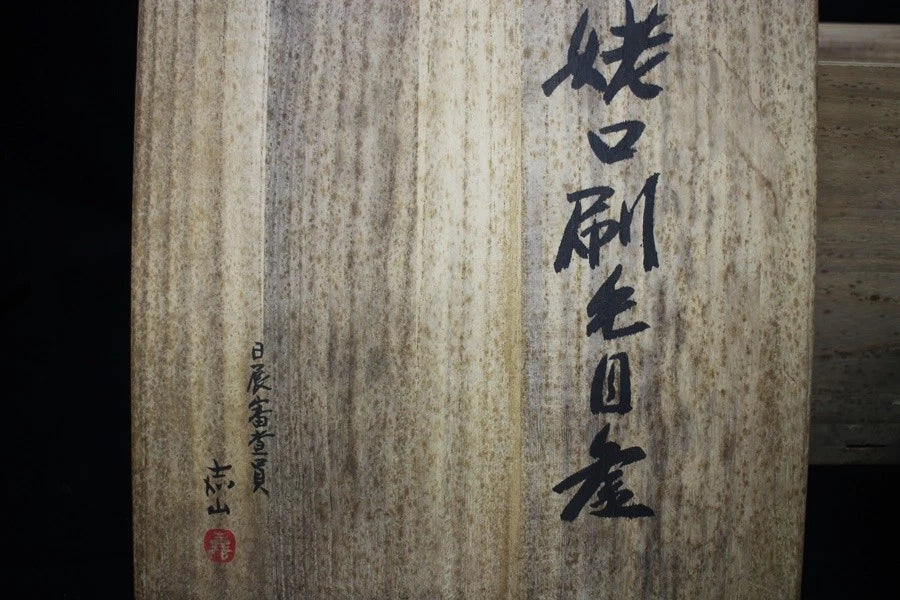 姥口刷毛目釜
日展審査員
志山